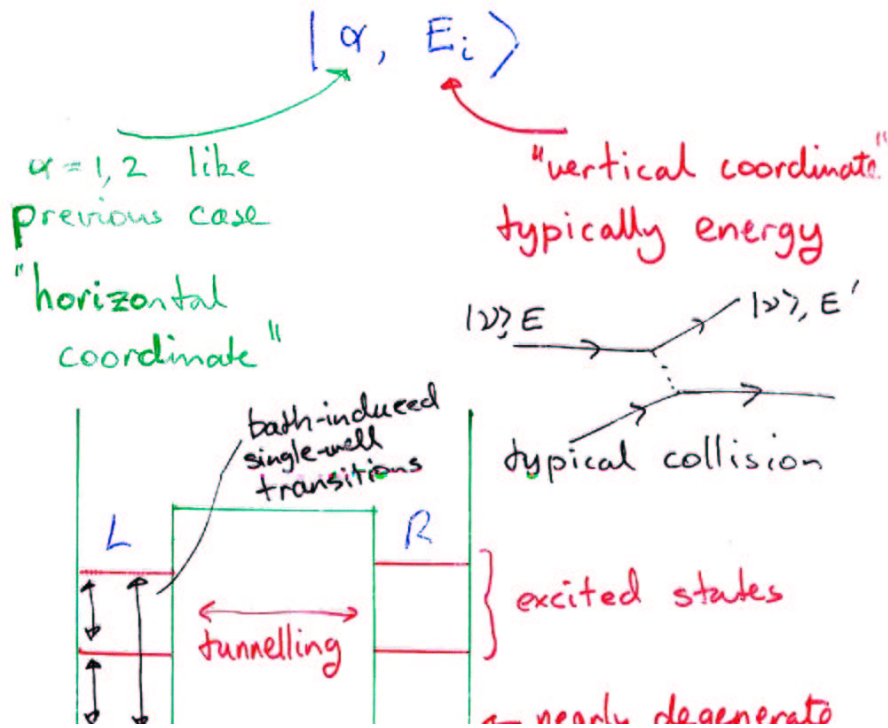 |α, E_i⟩
α = 1,2 like
previous case
"horizontal
coordinate"
"vertical coordinate"
typically energy
|ν⟩, E
|ν⟩, E'
typical collision
bath-induced
single-well
transitions
L
R
tunnelling
excited states
← nearly degenerate